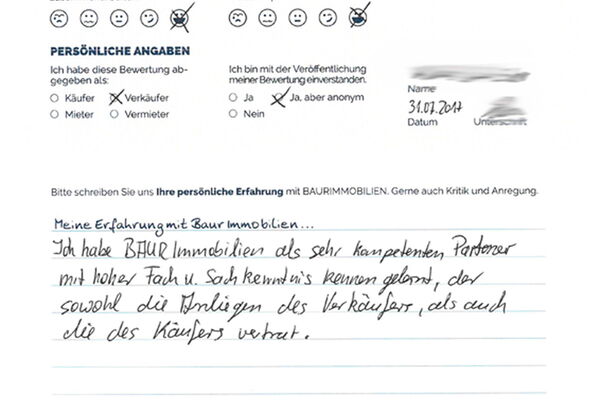 PERSÖNLICHE ANGABEN
Ich habe diese Bewertung ab-
gegeben als:
Käufer Verkäufer
Mieter Vermieter
Ich bin mit der Veröffentlichung
meiner Bewertung einverstanden.
Ja Ja, aber anonym
Nein
Name
31.07.2017
Datum Unterschrift
Bitte schreiben Sie uns Ihre persönliche Erfahrung mit BAURIMMOBILIEN. Gerne auch Kritik und Anregung.
Meine Erfahrung mit Baur Immobilien...
Ich habe BAUR Immobilien als sehr kompetenten Partner
mit hoher Fach u. Sachkenntnis kennen gelernt, der
sowohl die Anliegen des Verkäufers, als auch
die des Käufers vertrat.